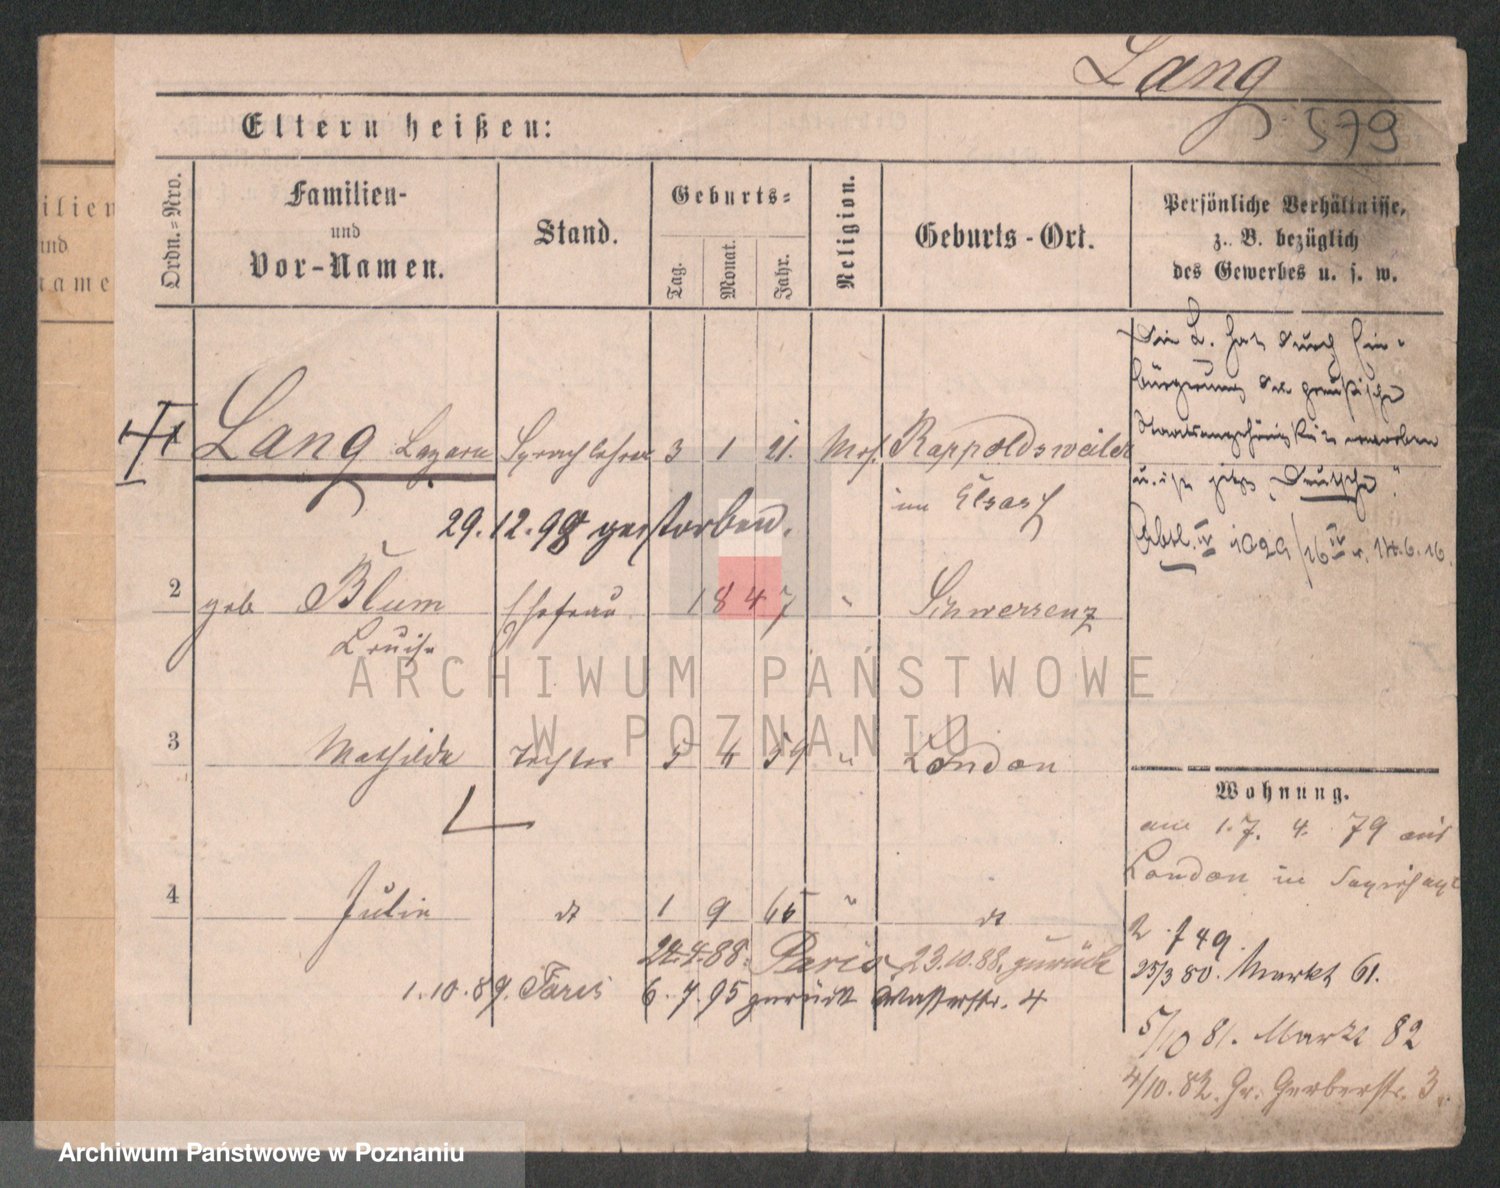 Lang
579
Eltern heißen:
Ordn.-Nro.
Familien-
und
Vor-Namen.
Stand.
Geburts-
Tag.
Monat.
Jahr.
Religion.
Geburts-Ort.
Persönliche Verhältnisse,
z. B. bezüglich
des Gewerbes u. s. w.
ilien
und
name
Die L. hat durch Ein-
bürgerung die preußische
Staatsangehörigkeit erworben
u. ist jetzt „Deutsche".
Abtl. IV 1029/16 IV v. 14.6.16
1 Lang Lazare Sprachlehrer 3 1 21. Mos. Rappoldsweiler
im Elsass
29.12.98 gestorben.
2 geb Blum Ehefrau 1847 " Schwersenz
Louise
3 Mathilde Tochter 5 4 59 " London
4 Julie dt 1 9 65 " dt
24.4.88. Paris 23.10.88. zurück
1.10.89. Paris 6.7.95 zurück Wasserstr. 4
Wohnung.
am 1.7. 4. 79 aus
London in
2 749.
25/3 80. Markt 61.
5/10 81. Markt 82
4/10.82. Gr. Gerberstr. 3.
ARCHIWUM PAŃSTWOWE
W POZNANIU
Archiwum Państwowe w Poznaniu